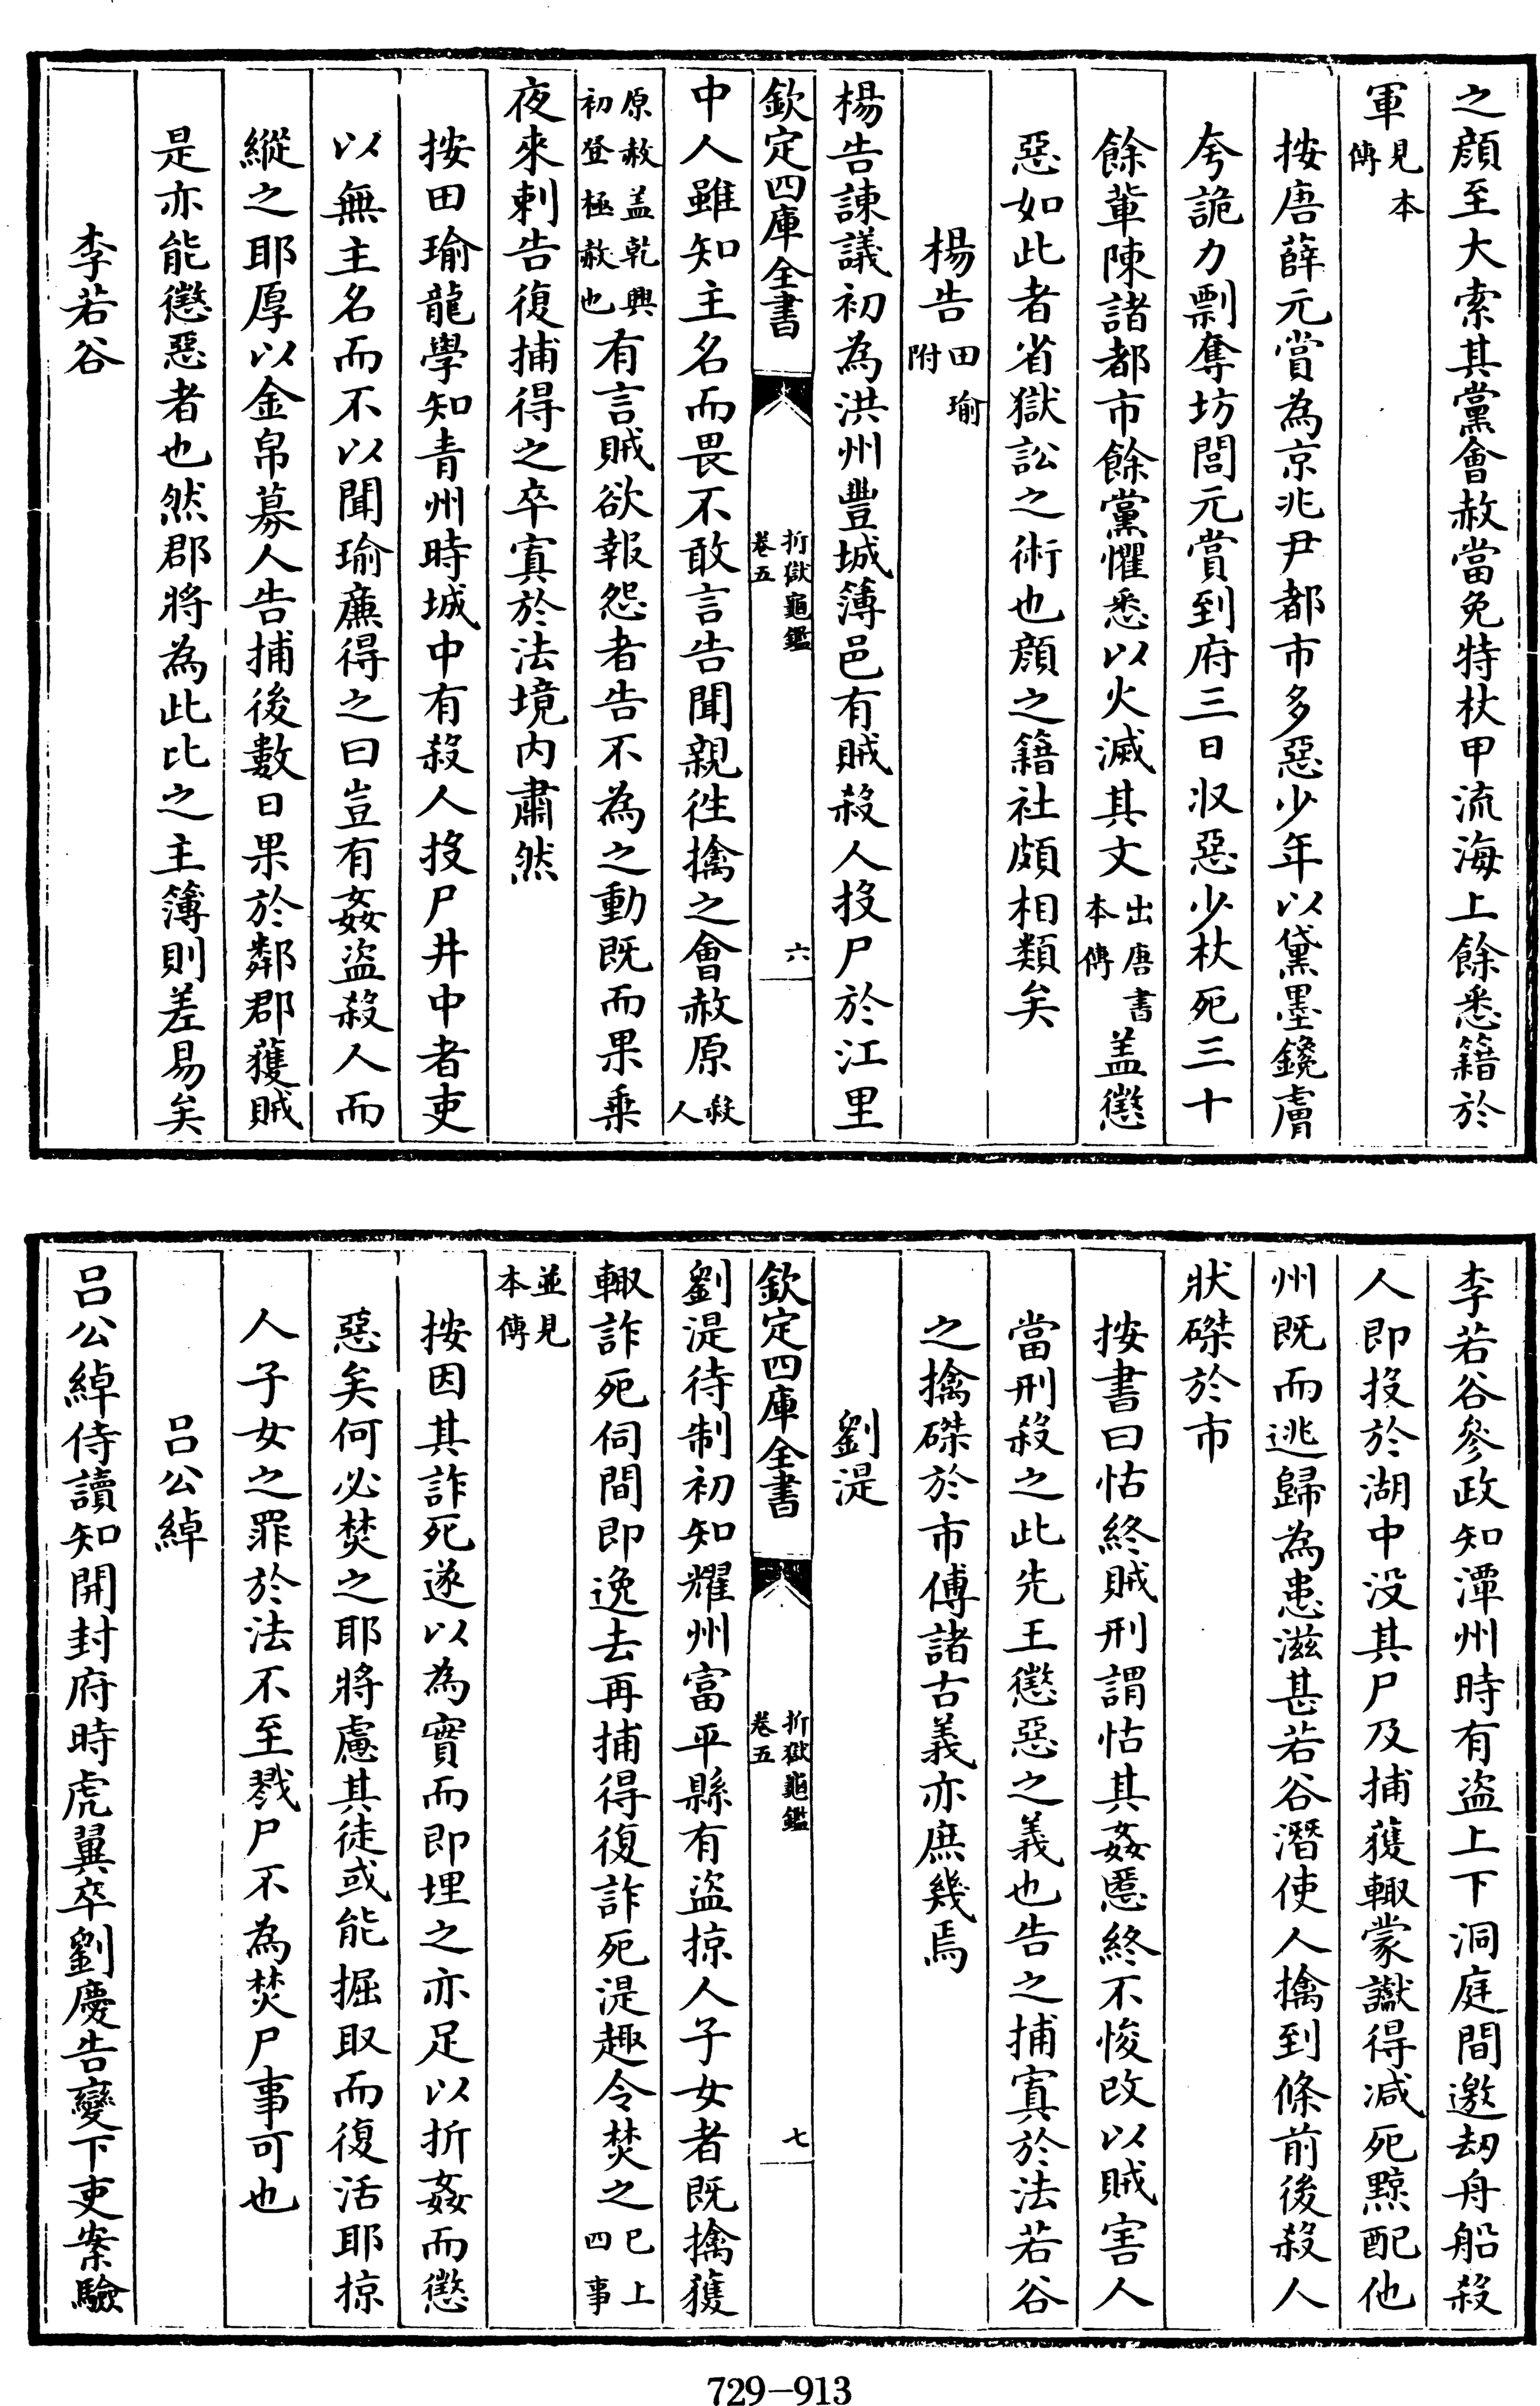 之顔至大索其黨會赦當免特杖甲流海上餘悉籍於
軍見本傳
按唐薛元賞為京兆尹都市多惡少年以黛墨鑱膚
夸詭力剽奪坊閭元賞到府三日收惡少杖死三十
餘輩陳諸都市餘黨懼悉以火滅其文出唐書本傳盖懲
惡如此者省獄訟之術也顔之籍社頗相類矣
楊告田瑜附
楊告諫議初為洪州豐城簿邑有賊殺人投尸於江里
欽定四庫全書
折獄龜鑑卷五
六
中人雖知主名而畏不敢言告聞親徃擒之會赦原殺人
原赦盖乾興初登極赦也有言賊欲報怨者告不為之動既而果乗
夜來刺告復捕得之卒寘於法境内肅然
按田瑜龍學知青州時城中有殺人投尸井中者吏
以無主名而不以聞瑜廉得之曰豈有姦盜殺人而
縱之耶厚以金帛募人告捕後數日果於鄰郡獲賊
是亦能懲惡者也然郡將為此比之主簿則差易矣
李若谷
李若谷參政知潭州時有盜上下洞庭間邀刼舟船殺
人即投於湖中没其尸及捕獲輙蒙讞得減死黥配他
州既而逃歸為患滋甚若谷潛使人擒到條前後殺人
狀磔於市
按書曰怙終賊刑謂怙其姦慝終不悛改以賊害人
當刑殺之此先王懲惡之義也告之捕寘於法若谷
之擒磔於市傅諸古義亦庶幾焉
劉湜
欽定四庫全書
折獄龜鑑卷五
七
劉湜待制初知耀州富平縣有盜掠人子女者既擒獲
輙詐死伺間即逸去再捕得復詐死湜趣令焚之已上四事
並見本傳
按因其詐死遂以為實而即埋之亦足以折姦而懲
惡矣何必焚之耶將慮其徒或能掘取而復活耶掠
人子女之罪於法不至戮尸不為焚尸事可也
吕公綽
吕公綽侍讀知開封府時虎翼卒劉慶告變下吏案驗
729-913